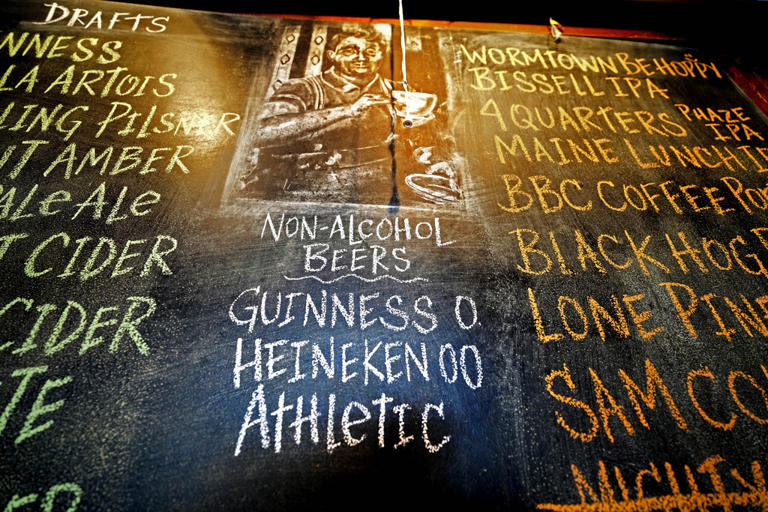 DRAFTS
NNESS
LA ARTOIS
LING PILSNER
T AMBER
ALE ALE
T CIDER
CIDER
TE
NON-ALCOHOL
BEERS
GUINNESS 0.
HEINEKEN 00
AthLetic
WORMTOWN BE HOPPY
BISSELL IPA
4 QUARTERS PHAZE
IPA
MAINE LUNCH I
BBC COFFEE PO
BLACK HOG
LONE PINE
SAM CO
MIGHTY